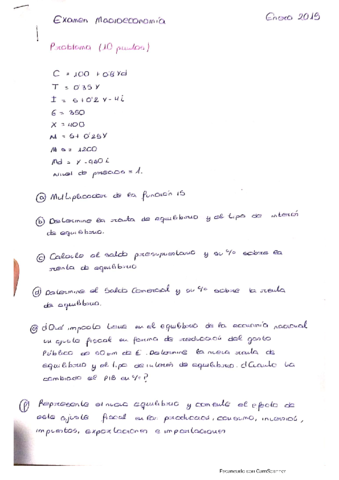 Examen Macroeconomía
Enero 2015
Problema (10 puntos)
C = 100 + 0'8 Yd
T = 0'35 Y
I = 5 + 0'2 Y - 4i
G = 350
X = 400
M = 5 + 0'25 Y
Ms = 1200
Md = Y - i
Nivel de precios = 1.
a) Multiplicador de la función IS
b) Determine la renta de equilibrio y el tipo de interés
de equilibrio.
c) Calcule el saldo presupuestario y su % sobre la
renta de equilibrio
d) Determine el Saldo Comercial y su % sobre la renta
de equilibrio.
e) ¿Qué impacto tiene en el equilibrio de la economía nacional
un ajuste fiscal en forma de reducción del gasto
Público de € Determine la nueva renta de
equilibrio y el tipo de interés de equilibrio. ¿Cuánto ha
cambiado el PIB en %?
f) Represente el nuevo equilibrio y comente el efecto de
este ajuste fiscal en la producción, consumo, inversión,
impuestos, exportaciones e importaciones
Escaneado con CamScanner